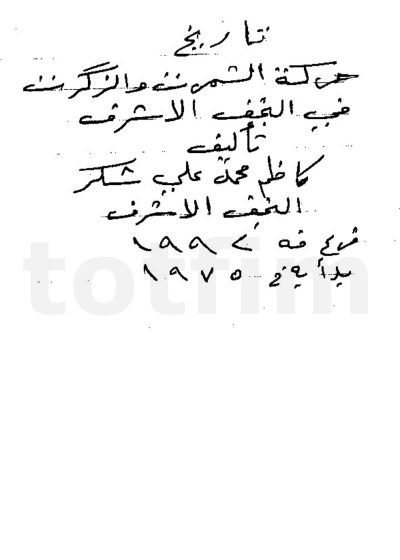 تاريخ
حركة الشمرت والزگرت
في النجف الاشرف
تأليف
كاظم محمد علي شكر
النجف الاشرف
فرغ منه ١٩٩٢
بدأ به في ١٩٧٥
totfim